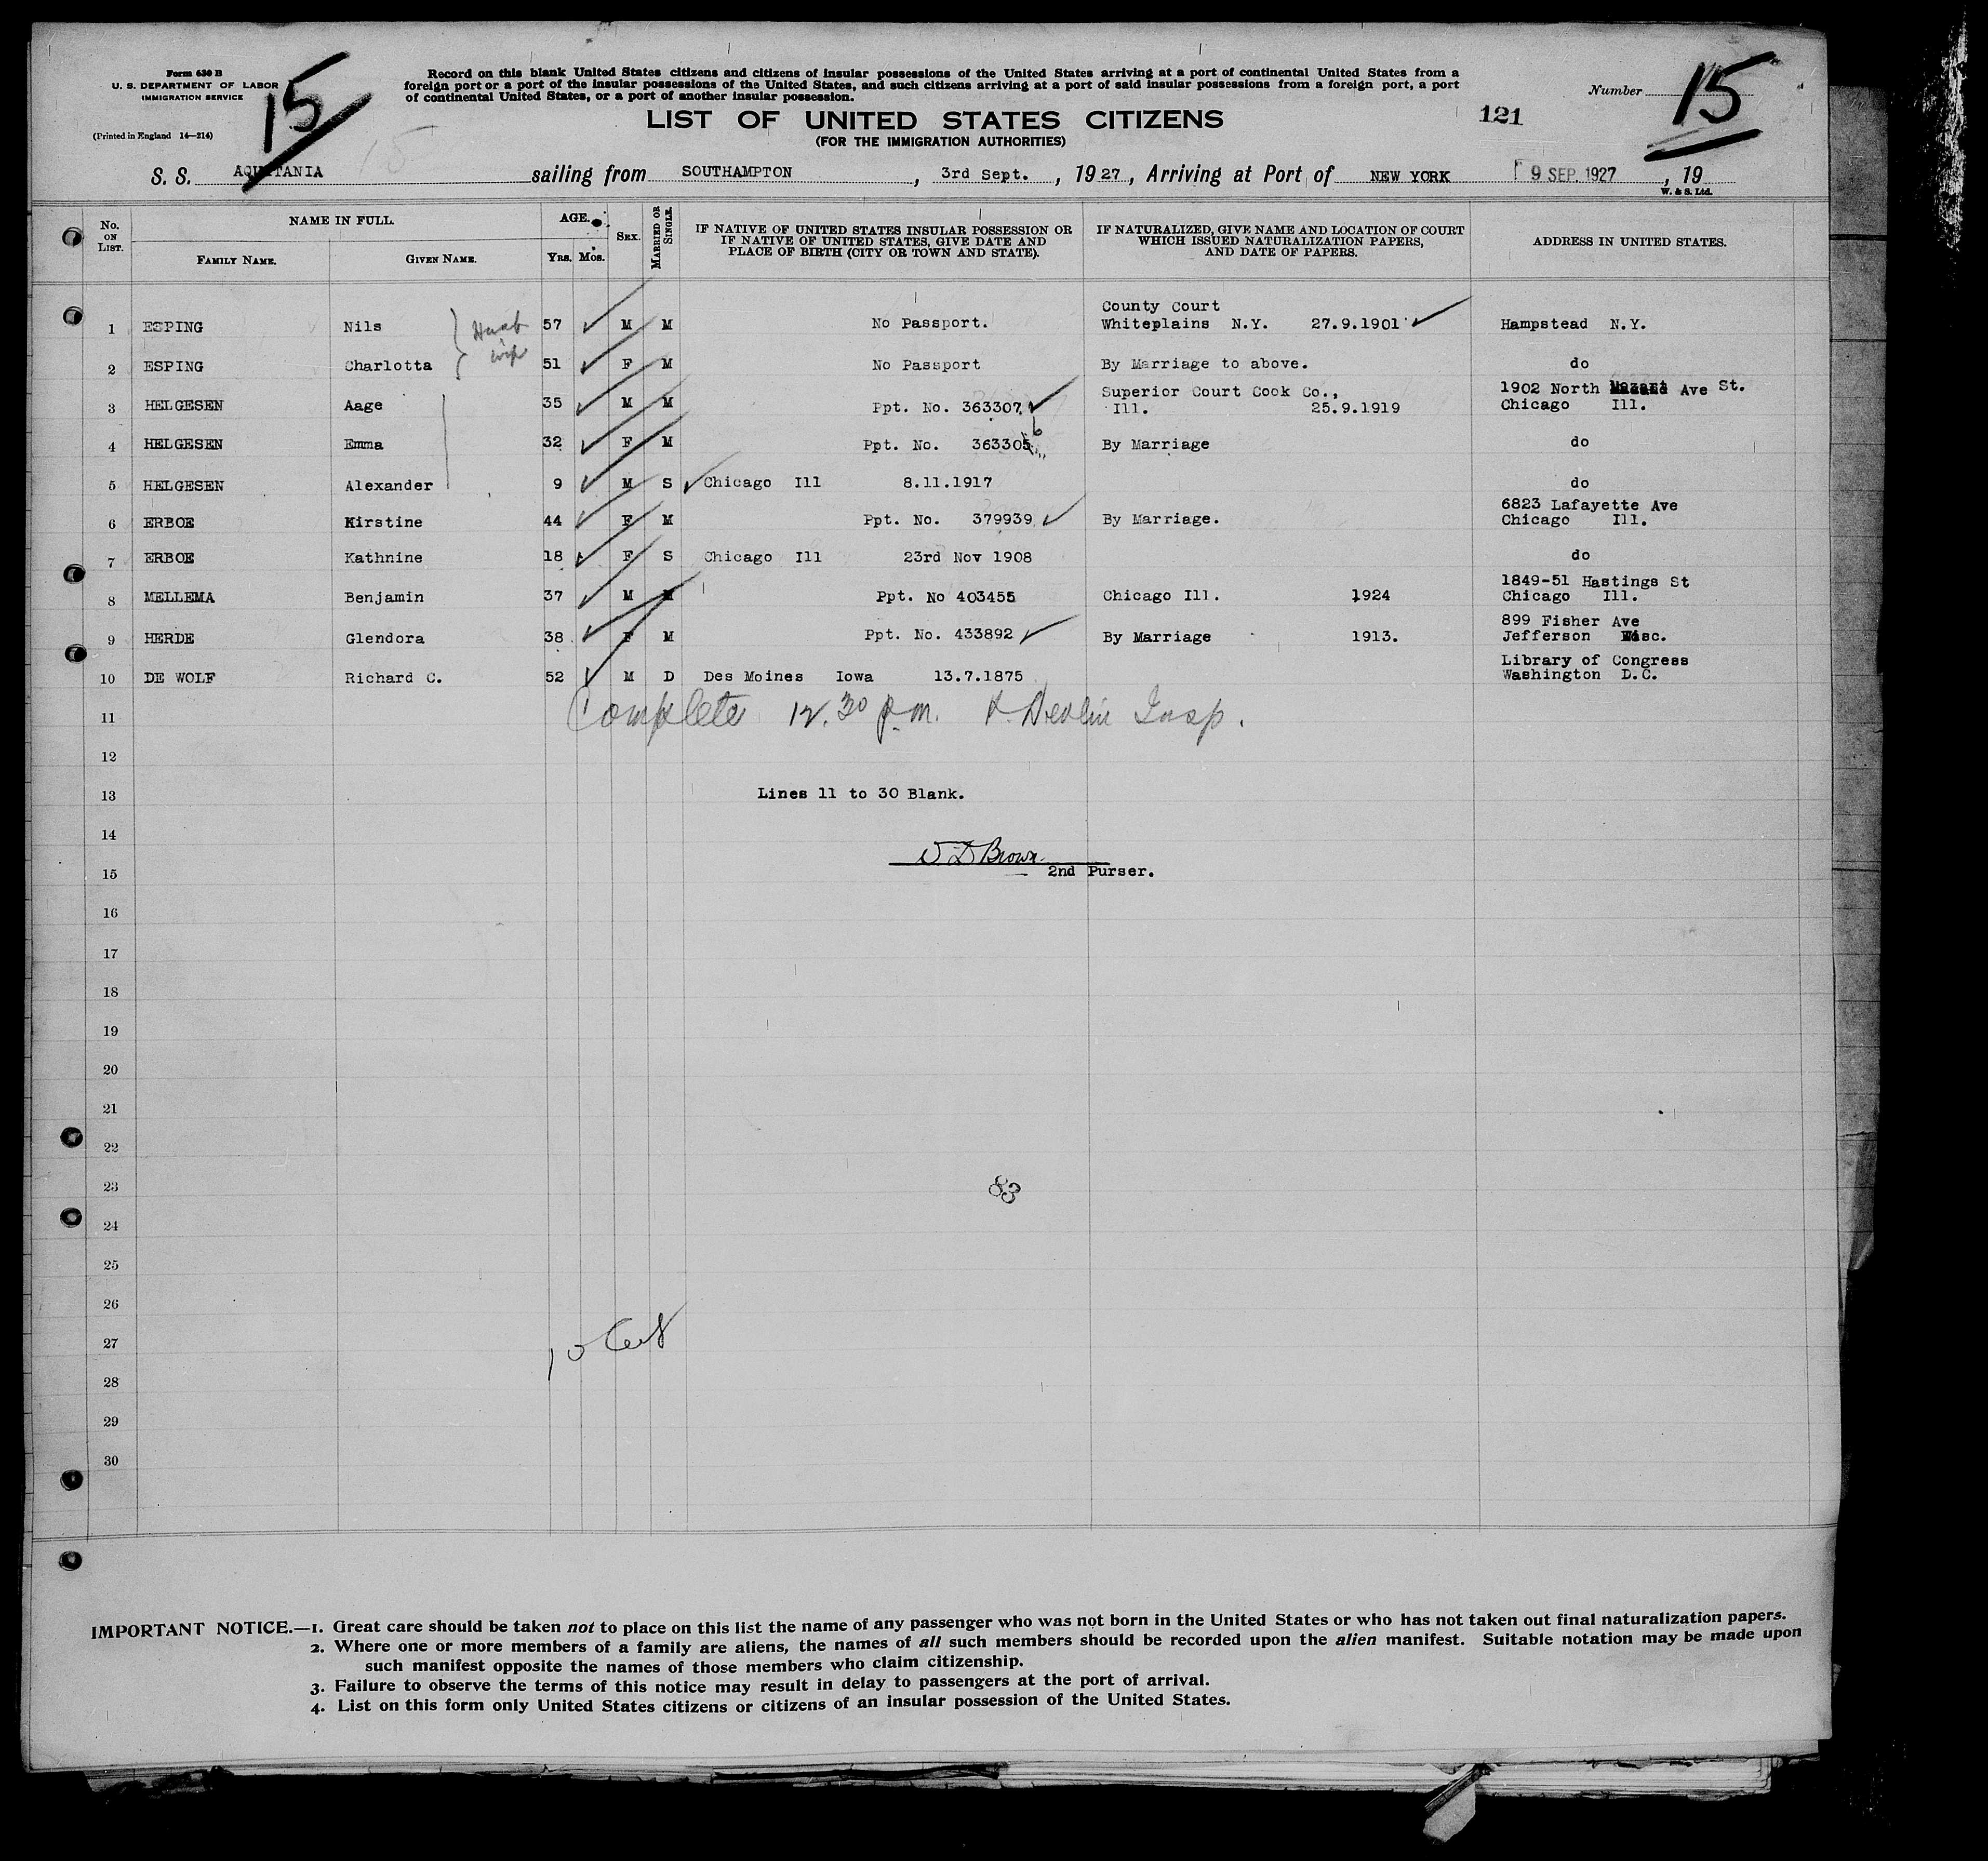 Form 630 B
U. S. DEPARTMENT OF LABOR
IMMIGRATION SERVICE
(Printed in England 14—214)
15
Record on this blank United States citizens and citizens of insular possessions of the United States arriving at a port of continental United States from a
foreign port or a port of the insular possessions of the United States, and such citizens arriving at a port of said insular possessions from a foreign port, a port
of continental United States, or a port of another insular possession.
LIST OF UNITED STATES CITIZENS
(FOR THE IMMIGRATION AUTHORITIES)
121
Number 15
15
S. S. AQUITANIA sailing from SOUTHAMPTON, 3rd Sept., 1927, Arriving at Port of NEW YORK 9 SEP. 1927, 19
W. & S. Ltd.
No. ON LIST. NAME IN FULL. FAMILY NAME. GIVEN NAME. AGE. YRS. MOS. SEX. MARRIED OR SINGLE. IF NATIVE OF UNITED STATES INSULAR POSSESSION OR IF NATIVE OF UNITED STATES, GIVE DATE AND PLACE OF BIRTH (CITY OR TOWN AND STATE). IF NATURALIZED, GIVE NAME AND LOCATION OF COURT WHICH ISSUED NATURALIZATION PAPERS, AND DATE OF PAPERS. ADDRESS IN UNITED STATES.
1 ESPING Nils 57 M M No Passport. County Court Whiteplains N.Y. 27.9.1901 Hampstead N.Y.
wife
2 ESPING Charlotta 51 F M No Passport By Marriage to above. do
3 HELGESEN Aage 35 M M Ppt. No. 363307 Superior Court Cook Co., Ill. 25.9.1919 1902 North Mozart Ave St. Chicago Ill.
4 HELGESEN Emma 32 F M Ppt. No. 363305 6 By Marriage do
5 HELGESEN Alexander 9 M S Chicago Ill 8.11.1917 do
6 ERBOE Kirstine 44 F M Ppt. No. 379939 By Marriage. 6823 Lafayette Ave Chicago Ill.
7 ERBOE Kathnine 18 F S Chicago Ill 23rd Nov 1908 do
8 MELLEMA Benjamin 37 M M Ppt. No 403455 Chicago Ill. 1924 1849-51 Hastings St Chicago Ill.
9 HERDE Glendora 38 F M Ppt. No. 433892 By Marriage 1913. 899 Fisher Ave Jefferson Wisc.
10 DE WOLF Richard C. 52 M D Des Moines Iowa 13.7.1875 Library of Congress Washington D.C.
11 Complete 12.30 p.m. Devlin Insp.
12
13 Lines 11 to 30 Blank.
14
W D Brown
15 2nd Purser.
16
17
18
19
20
21
22
23 83
24
25
26
27 10
28
29
30
IMPORTANT NOTICE.—1. Great care should be taken not to place on this list the name of any passenger who was not born in the United States or who has not taken out final naturalization papers.
2. Where one or more members of a family are aliens, the names of all such members should be recorded upon the alien manifest. Suitable notation may be made upon
such manifest opposite the names of those members who claim citizenship.
3. Failure to observe the terms of this notice may result in delay to passengers at the port of arrival.
4. List on this form only United States citizens or citizens of an insular possession of the United States.